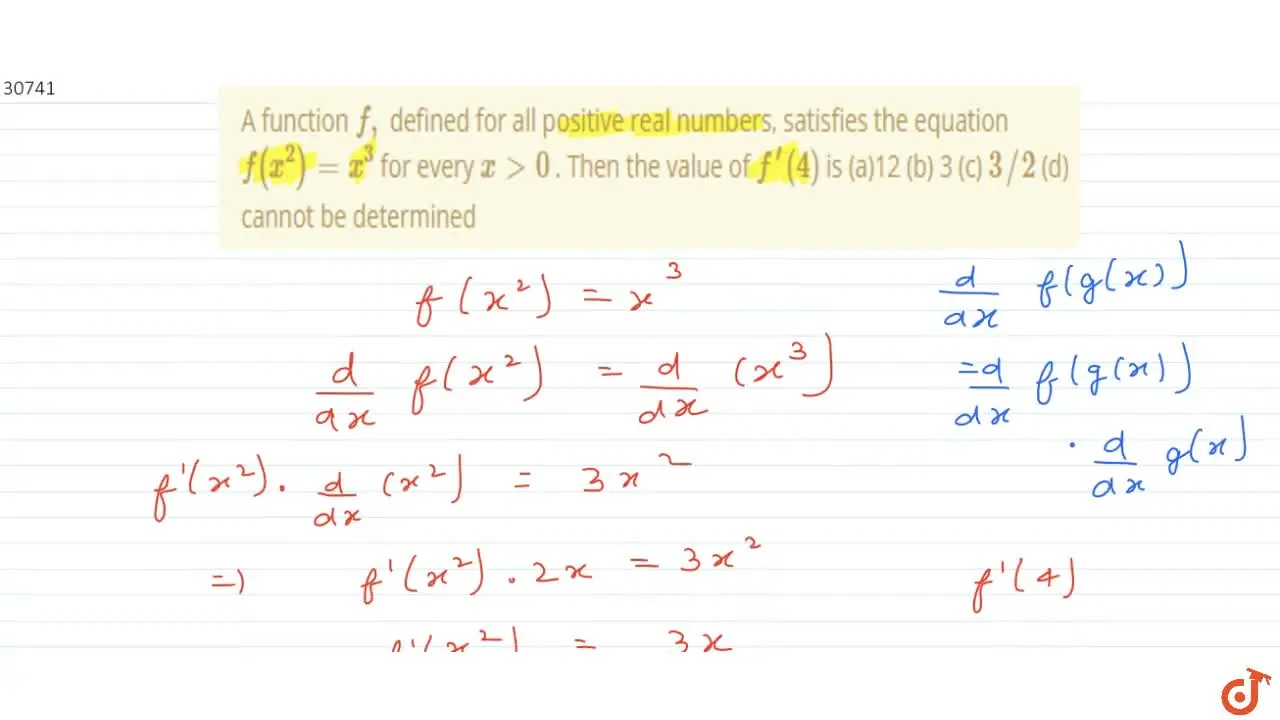 30741
A function f, defined for all positive real numbers, satisfies the equation
f(x²) = x³ for every x > 0. Then the value of f'(4) is (a)12 (b) 3 (c) 3/2 (d)
cannot be determined
f(x²) = x³
d/dx f(x²) = d/dx (x³)
f'(x²) . d/dx (x²) = 3x²
=) f'(x²) . 2x = 3x²
f'(x²) = 3x
d/dx f(g(x))
= d/dx f(g(x))
. d/dx g(x)
f'(4)